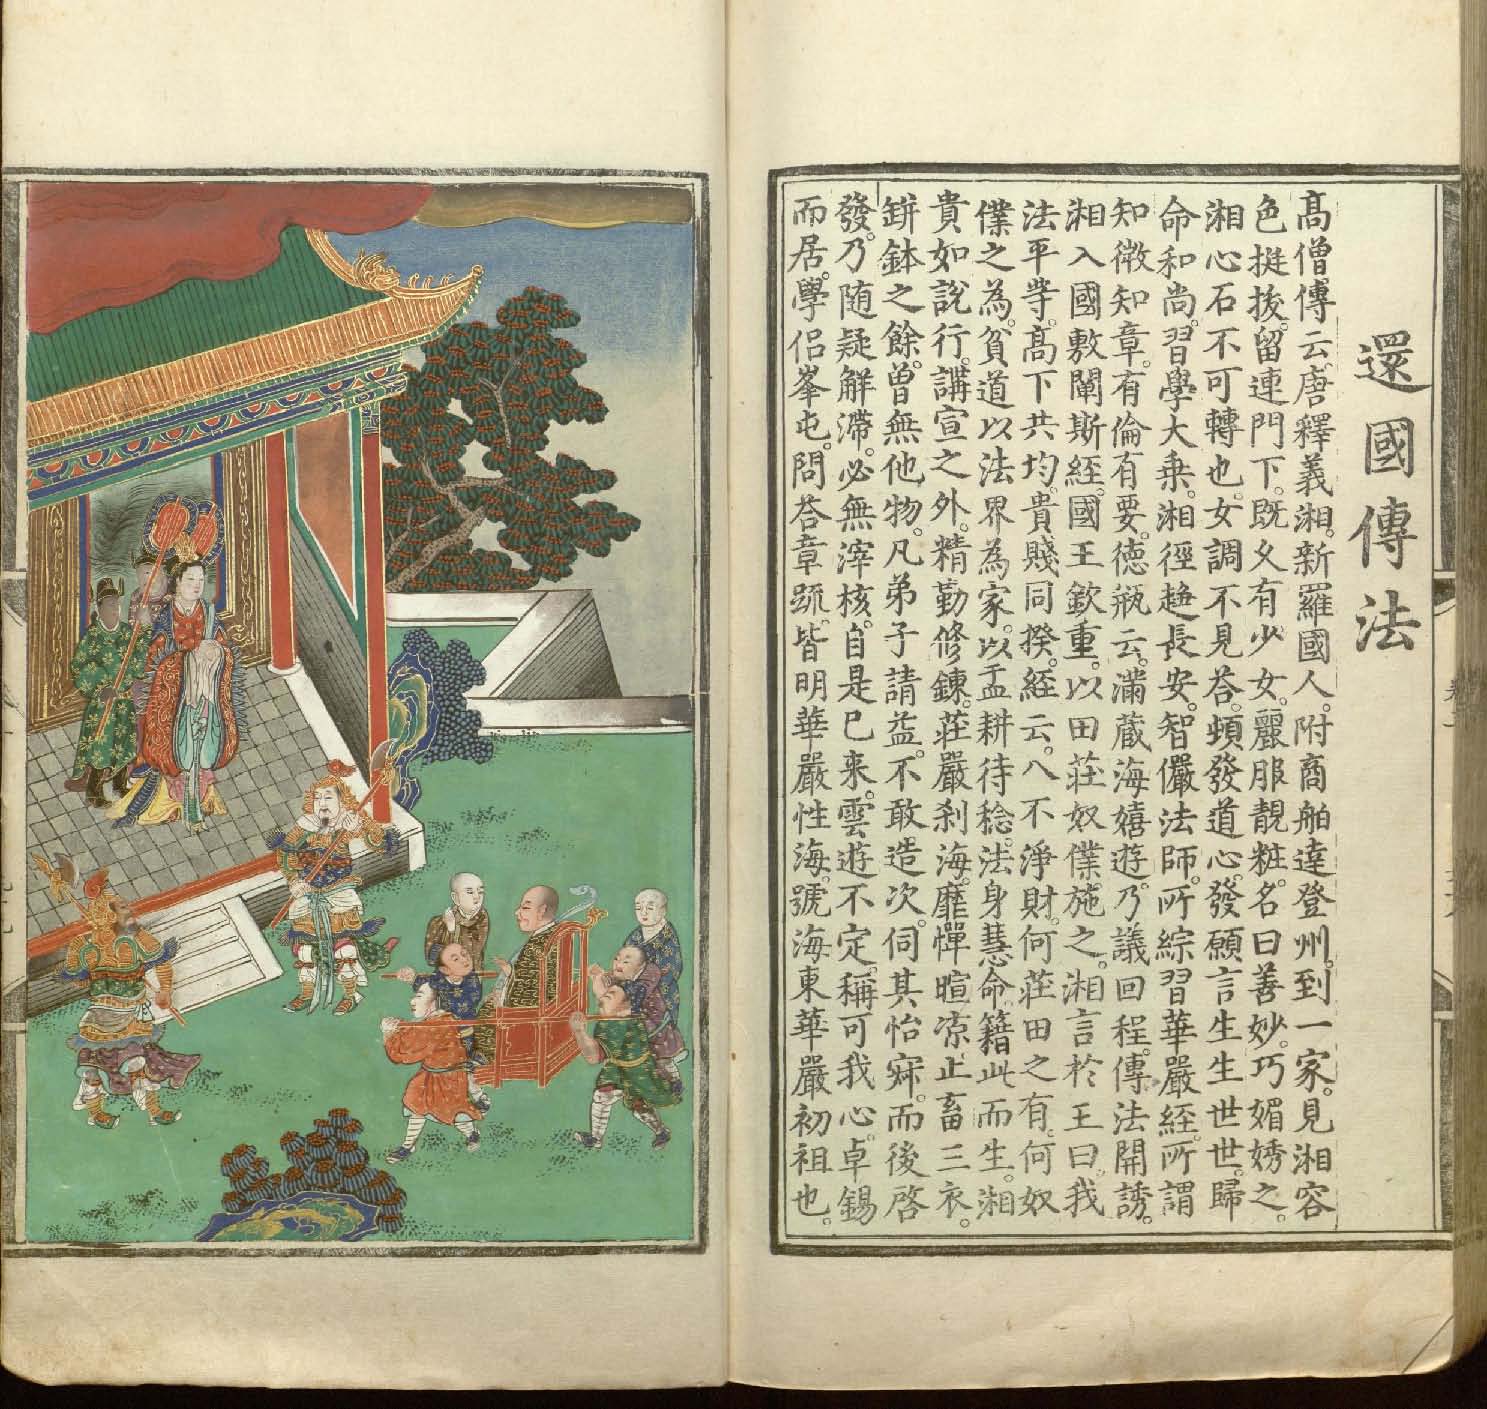 還國傳法
高僧傳云。唐釋義湘。新羅國人。附商舶達登州。到一家。見湘容
色挺拔。留連門下。既久有少女。麗服靚粧。名曰善妙。巧媚誘之。
湘心石不可轉也。女調不見荅。頓發道心。發願言生生世世。歸
命和尚。習學大乘。湘徑趍長安。智儼法師。所綜習華嚴經。所謂
知微知章。有倫有要。德瓶云。滿蔵海嬉遊。乃議回程。傳法開誘。
湘入國敷闡斯經。國王欽重。以田莊奴僕施之。湘言於王曰。我
法平等。高下共均。貴賤同揆。經云。八不淨財。何莊田之有。何奴
僕之為。貧道以法界為家。以盂耕待稔。法身慧命。籍此而生。湘
貴如說行。講宣之外。精勤修鍊。莊嚴刹海。靡憚暄凉。止畜三衣。
缾鉢之餘。曽無他物。凡弟子請益。不敢造次。伺其怡寀。而後啓
發。乃随疑解滯。必無滓核。自是已来。雲遊不定。稱可我心。卓錫
而居。學侣峯屯。問荅章疏。皆明華嚴性海。號海東華嚴初祖也。